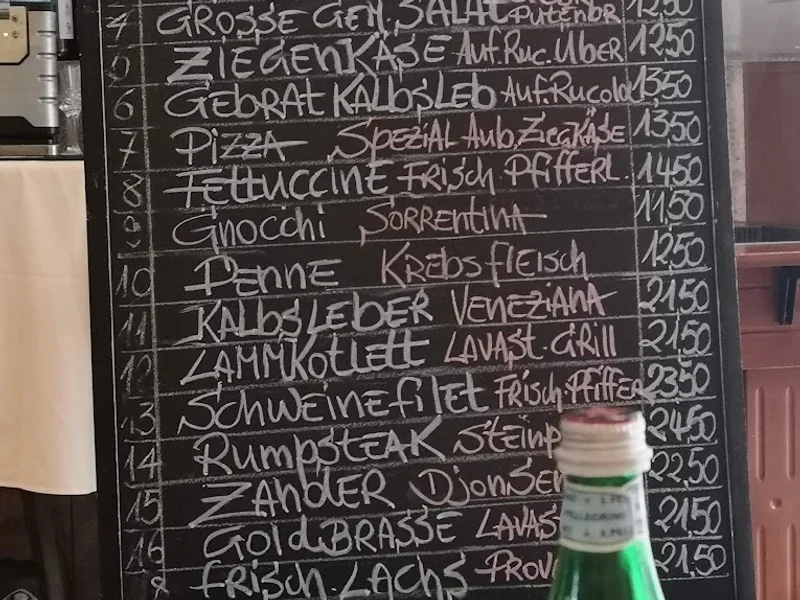 4 GROSSE GEM. SALAT PUTENBR 12,50
5 ZIEGENKÄSE AUF.RUC.ÜBER 12,50
6 GEBRAT KALBSLEB AUF.RUCOLA 13,50
7 PIZZA SPEZIAL AUB.ZIEGKÄSE 13,50
8 FETTUCCINE FRISCH PFIFFERL. 14,50
9 GNOCCHI SORRENTINA 11,50
10 PENNE KREBSFLEISCH 12,50
11 KALBSLEBER VENEZIANA 21,50
12 LAMMKOTLETT LAVAST.GRILL 21,50
13 SCHWEINEFILET FRISCH.PFIFFER 23,50
14 RUMPSTEAK STEINP 24,50
15 ZANDER DJONSEN 22,50
16 GOLDBRASSE LAVAST 21,50
FRISCH.LACHS PROV 21,50